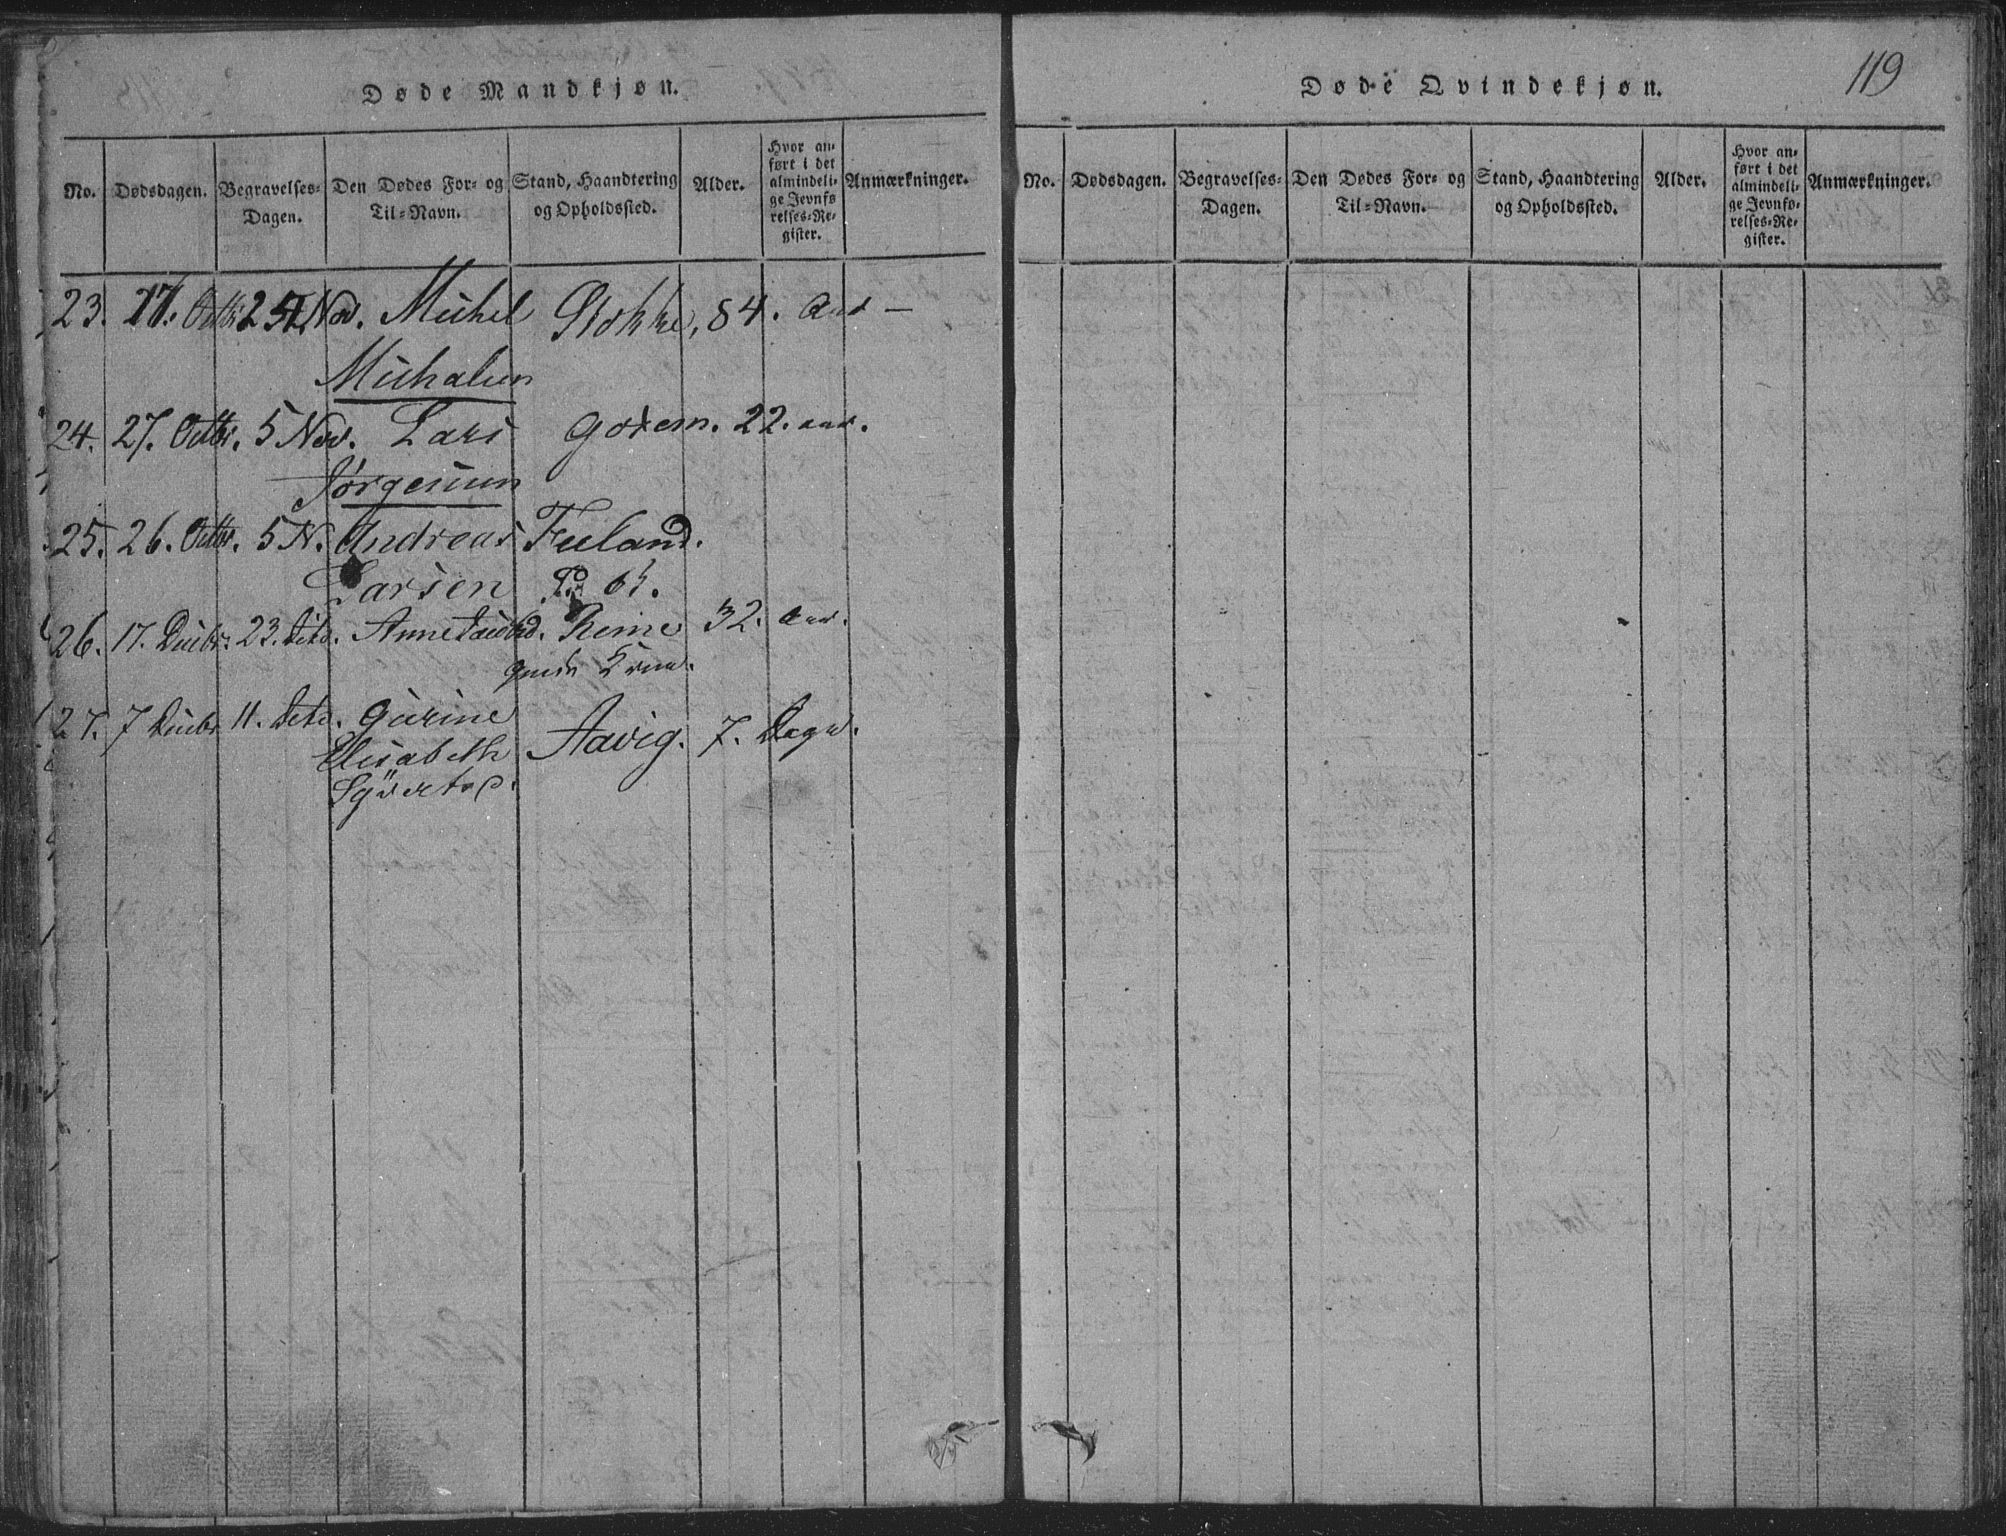 119
Døde Mandkjøn.
No. Dødsdagen. Begravelses-Dagen. Den Dødes For- og Til-Navn. Stand, Haandtering og Opholdssted. Alder. Hvor anført i det almindelige Jevnførelses-Register. Anmærkninger.
23. 17. Octbr. Nov. Michel Stokke, 84. Aar —
Michalsen
24. 27. Octbr. 5 Nov. Lars Goxem. 22. aar.
Jørgensen
25. 26. Octbr. 5 N. Andreas Feeland.
Larsen
26. 17. Decbr. 23. Dito. Anne Reme 32. Aar.
27. 7 Decbr. 11. Dito. Gurine Aavig. 7. Dage.
Elisabeth
Syvertsd.
Døde Qvindekjøn.
No. Dødsdagen. Begravelses-Dagen. Den Dødes For- og Til-Navn. Stand, Haandtering og Opholdssted. Alder. Hvor anført i det almindelige Jevnførelses-Register. Anmærkninger.